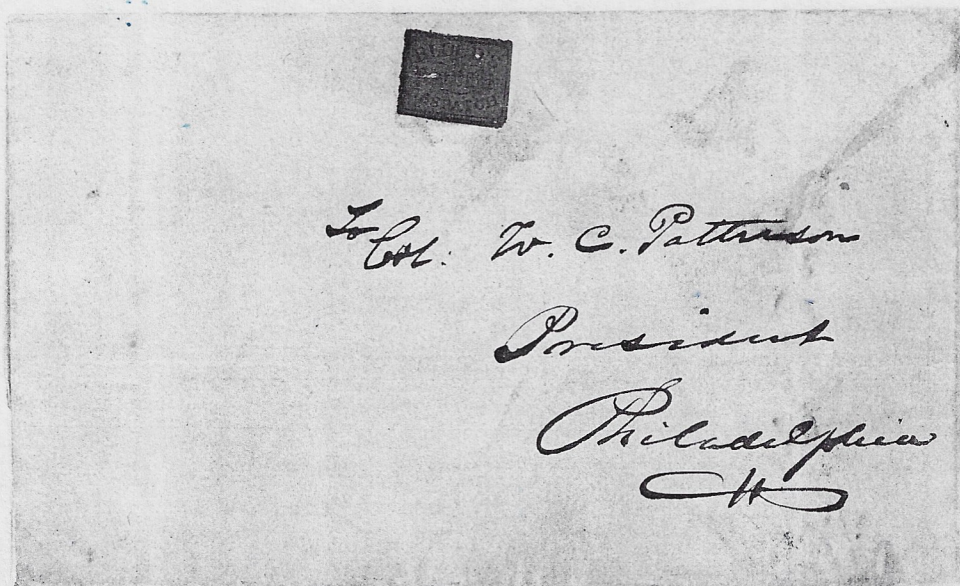 To
Col. W. C. Patterson
President
Philadelphia